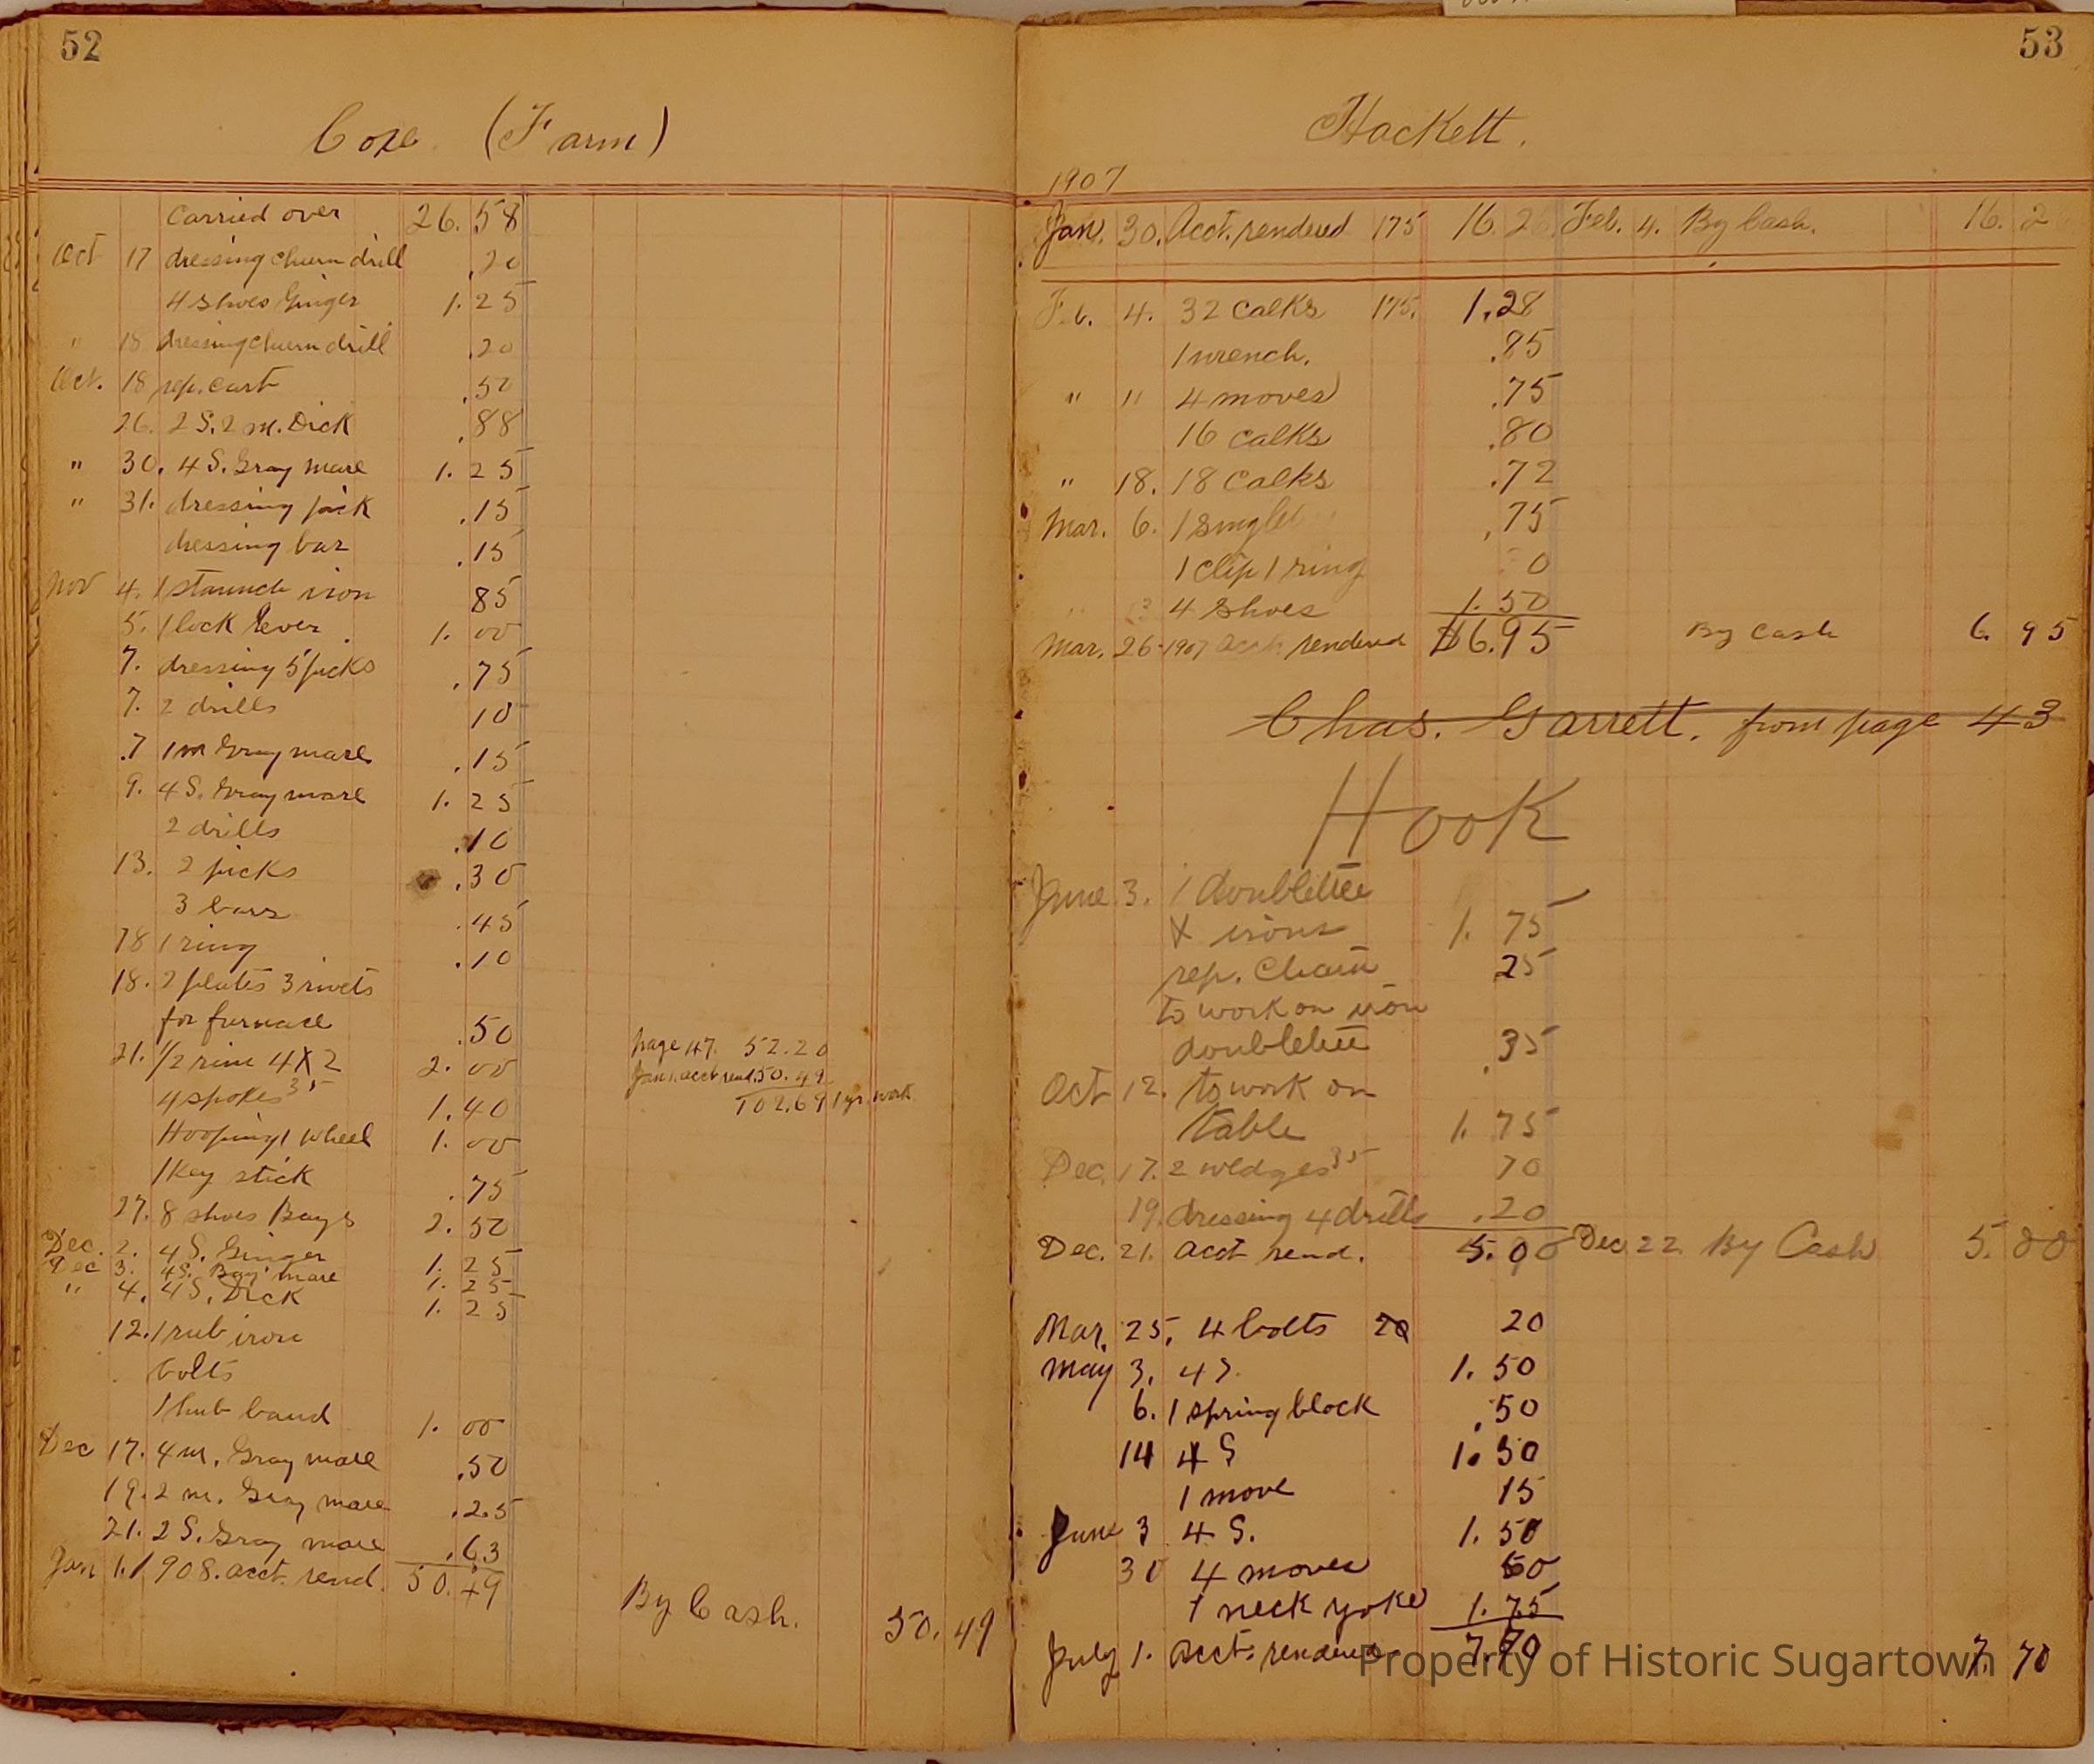 52
Coxe (Farm)
Carried over 26.58
Oct 17 dressing churn drill .20
4 shoes Ginger 1.25
" 18 dressing churn drill .20
Oct. 18 rep. cart .50
26. 2 S. 2 m. Dick .88
" 30. 4 S. Gray mare 1.25
" 31. dressing pick .15
dressing bar .15
Nov 4. 1 staunch iron 85
5. 1 lock lever. 1.00
7. dressing 5 picks .75
7. 2 drills 10
.7 1 m Gray mare .15
9. 4 S. Gray mare 1.25
2 drills .10
13. 2 picks .30
3 bars .45
18 1 ring .10
18. 2 plates 3 rivets
for furnace .50
21. 1/2 rim 4 X 2 2.00
4 spokes 35 1.40
Hooping 1 wheel 1.00
1 Key stick .75
27. 8 shoes Bays 2.50
Dec. 2. 4 S. Ginger 1.25
Dec 3. 4S. Bay mare 1.25
" 4. 4 S. Dick 1.25
12. 1 rub iron
bolts
1 hub band 1.00
Dec 17. 4 m. Gray mare .50
19. 2 m. Gray mare .25
21. 2 S. Gray mare .63
Jan 1. 1908. acct. rend. 50.49
page 47. 52.20
Jan 1. acct rend. 50.49
102.69 1 yr. work
By Cash. 50.49
53
Hackett.
1907
Jan. 30. Acct. rendered 175 16.26 Feb. 4. By Cash. 16.2
Feb. 4. 32 Calks 175. 1.28
1 wrench. .85
" " 4 moves .75
16 calks .80
" 18. 18 Calks .72
Mar. 6. 1 singlet .75
1 clip 1 ring 0
4 shoes 1.50
Mar. 26. 1907 acct. rendered $6.95 By Cash 6.95
Chas. Garrett. from page 43
Hook
June 3. 1 doubletree
& irons 1.75
rep. Chain 25
to work on iron
doubletree .35
Oct 12. to work on
table 1.75
Dec. 17. 2 wedges 35 70
19. dressing 4 drills .20
Dec. 21. acct rend. 5.00 Dec. 22 By Cash 5.00
Mar. 25. 4 bolts 20 20
May 3. 4 S. 1.50
6. 1 spring block .50
14 4 S 1.50
1 move 15
June 3 4 S. 1.50
30 4 moves 60
1 neck yoke 1.75
July 1. acct. rendered 7.70 7.70
Property of Historic Sugartown